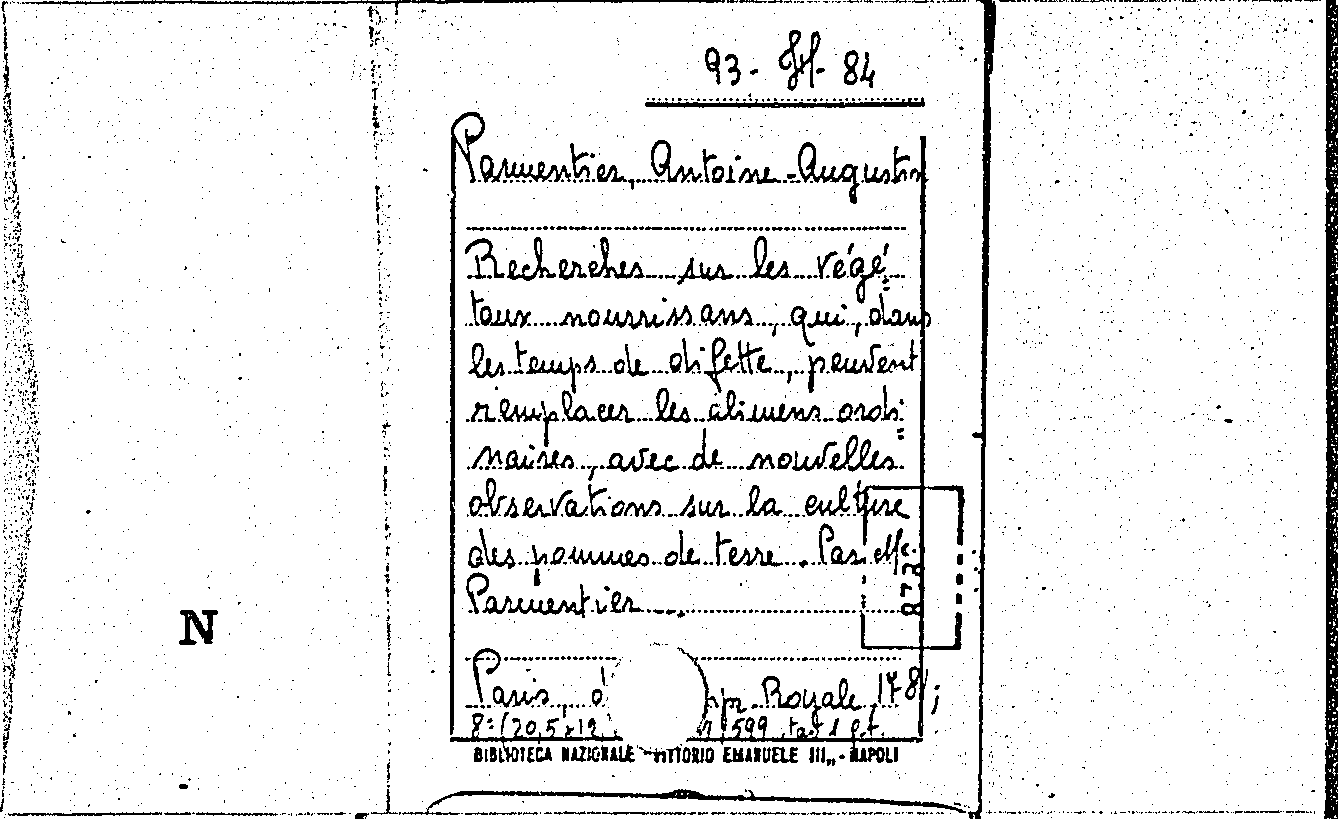 93. H. 84
Parmentier, Antoine-Augustin
Recherches sur les végé=
taux nourrissans, qui, dans
les temps de disette, peuvent
remplacer les alimens ordi=
naires, avec de nouvelles
observations sur la culture
des pommes de terre. Par M.
Parmentier ...
878
N
Paris, Royale, 178 ;
8° (20,5x12 599 tav 1 f.t.
BIBLIOTECA NAZIONALE "VITTORIO EMANUELE III„ - NAPOLI